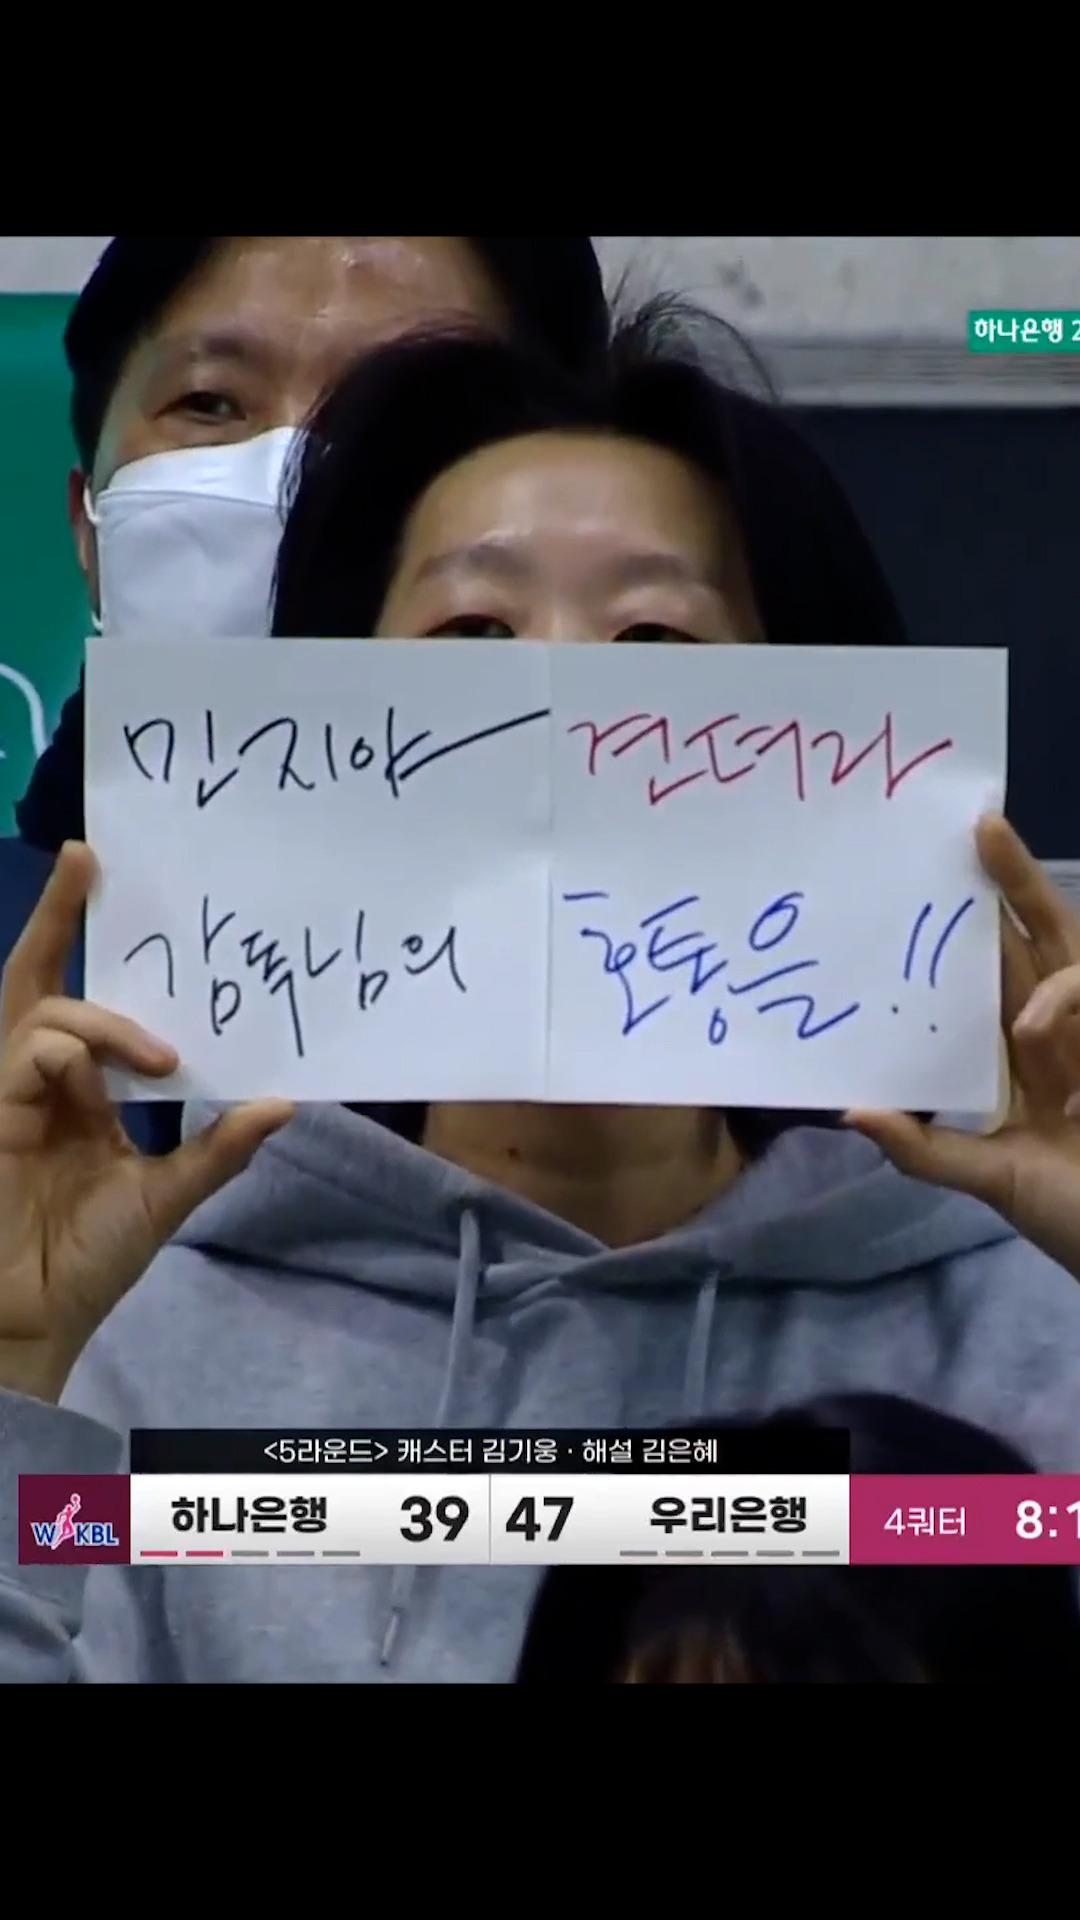 하나은행 2
민지야 견뎌라
감독님의 호통을!!
<5라운드> 캐스터 김기웅 · 해설 김은혜
WKBL 하나은행 39 47 우리은행 4쿼터 8:1